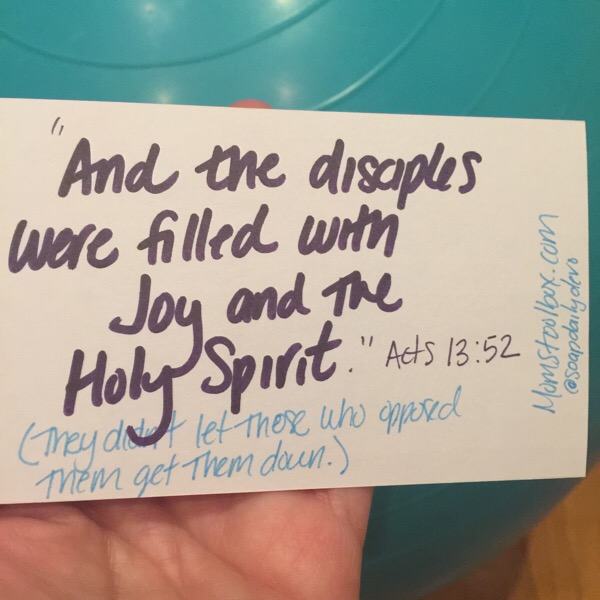 "And the disciples
were filled with
Joy and The
Holy Spirit." Acts 13:52
(They didn't let those who opposed
Them get Them down.)
Momstoolbox.com
@soapdailydevo